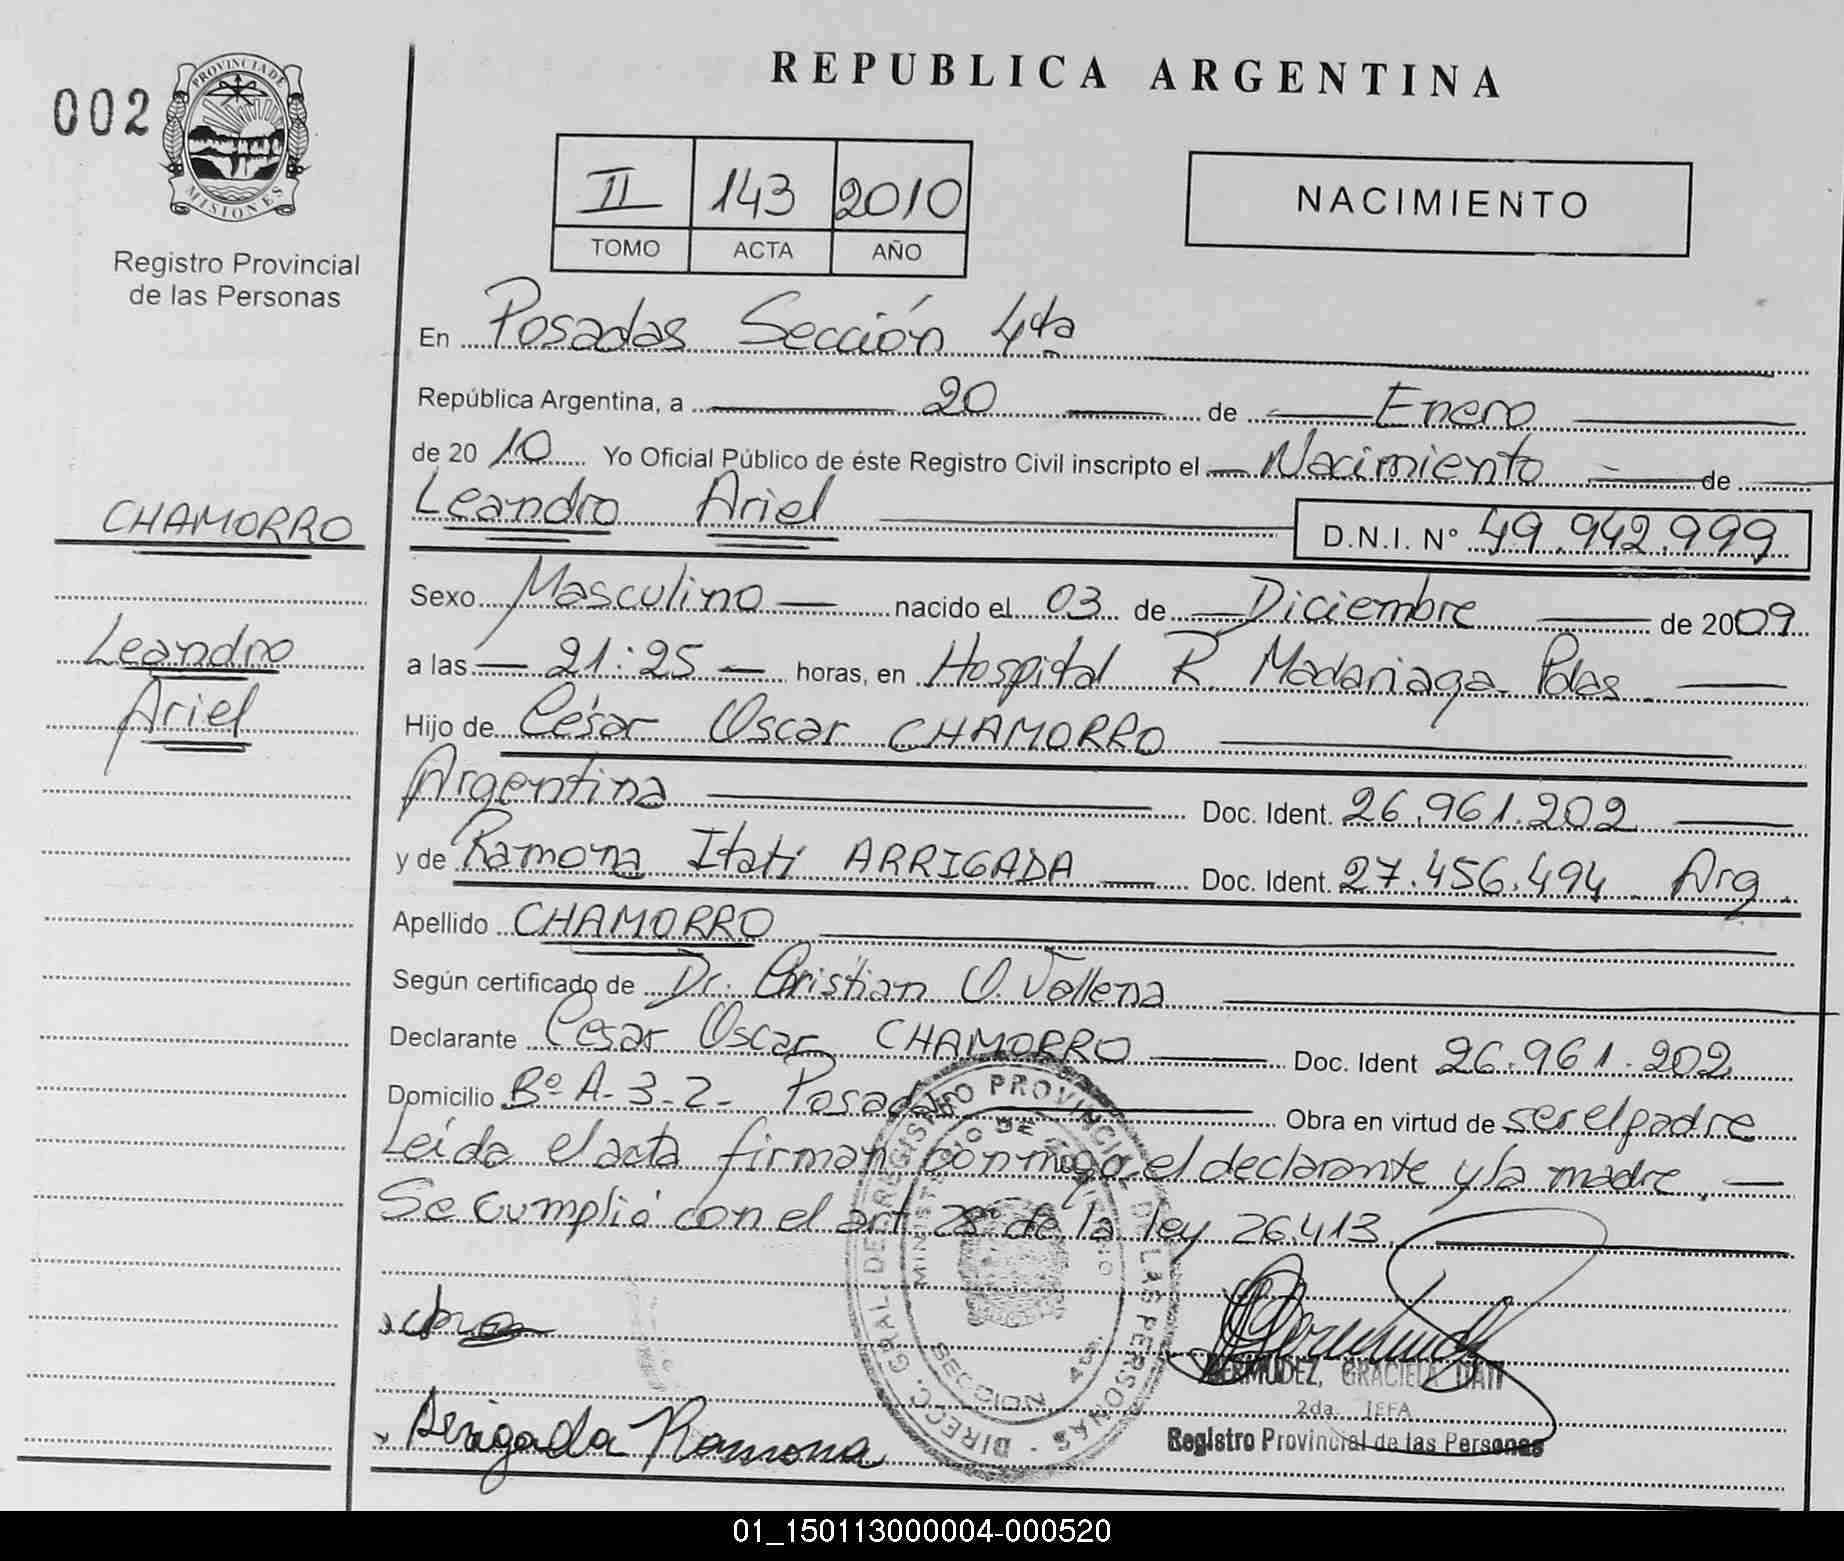 REPUBLICA ARGENTINA
002
PROVINCIA DE
MISIONES
Registro Provincial
de las Personas
II 143 2010
TOMO ACTA AÑO
NACIMIENTO
En Posadas Sección 4ta
República Argentina, a 20 de Enero
de 2010 Yo Oficial Público de éste Registro Civil inscripto el Nacimiento de
CHAMORRO
Leandro
Ariel
Leandro Ariel D.N.I. N° 49.942.999
Sexo Masculino nacido el 03 de Diciembre de 2009
a las 21:25 horas, en Hospital R. Madariaga Pdas
Hijo de César Oscar CHAMORRO
Argentina Doc. Ident. 26.961.202
y de Ramona Itatí ARRIGADA Doc. Ident. 27.456.494 Arg.
Apellido CHAMORRO
Según certificado de Dr. Christian O. Vallena
Declarante Cesar Oscar CHAMORRO Doc. Ident 26.961.202
Domicilio Bº A-3-2- Posadas Obra en virtud de ser el padre
Leída el acta firman conmigo el declarante y la madre.
Se cumplió con el art 28º de la ley 26.413
DIRECC. GRAL. DE REGISTRO PROVINCIAL DE LAS PERSONAS
MINISTERIO DE
SECCION 4ta
BERMUDEZ, GRACIELA ITATI
2da. JEFA
Registro Provincial de las Personas
Arrigada Ramona
01_150113000004-000520